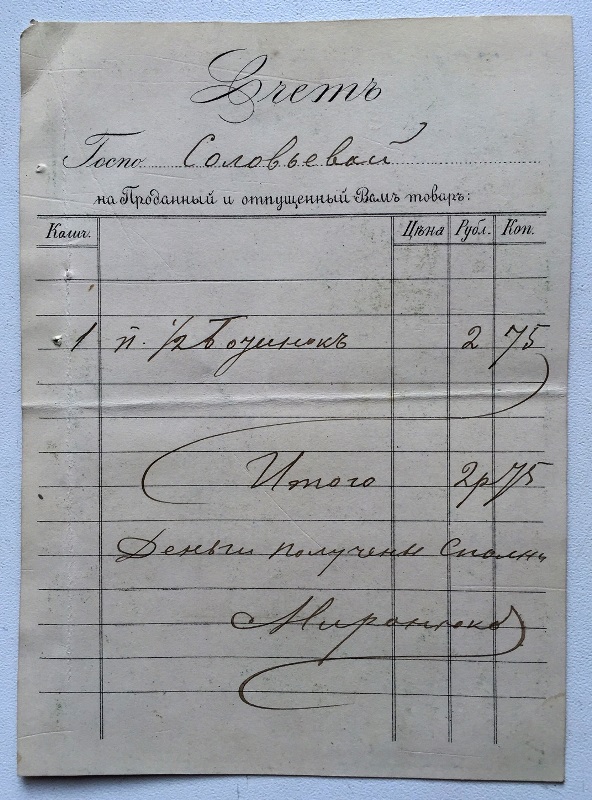 Счетъ
Госпо Соловьевай
на Проданный и отпущенный Вамъ товаръ:
Колич. Цѣна Рубл. Коп.
1 п. 1/2 Ботинокъ 2 75
Итого 2р 75
Деньги получены Сполна